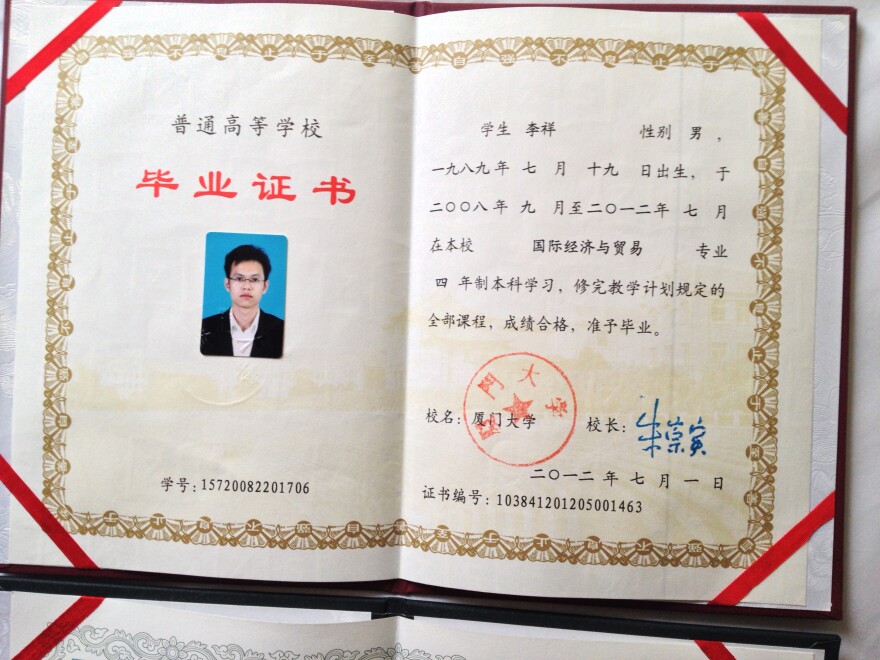 普通高等学校
毕业证书
学号：15720082201706
学生 李祥 性别 男，
一九八九年 七 月 十九 日出生，于
二〇〇八年 九 月至二〇一二年 七 月
在本校 国际经济与贸易 专业
四 年制本科学习，修完教学计划规定的
全部课程，成绩合格，准予毕业。
厦门大学
校名：厦门大学 校长：朱崇实
二〇一二 年 七 月 一 日
证书编号：103841201205001463